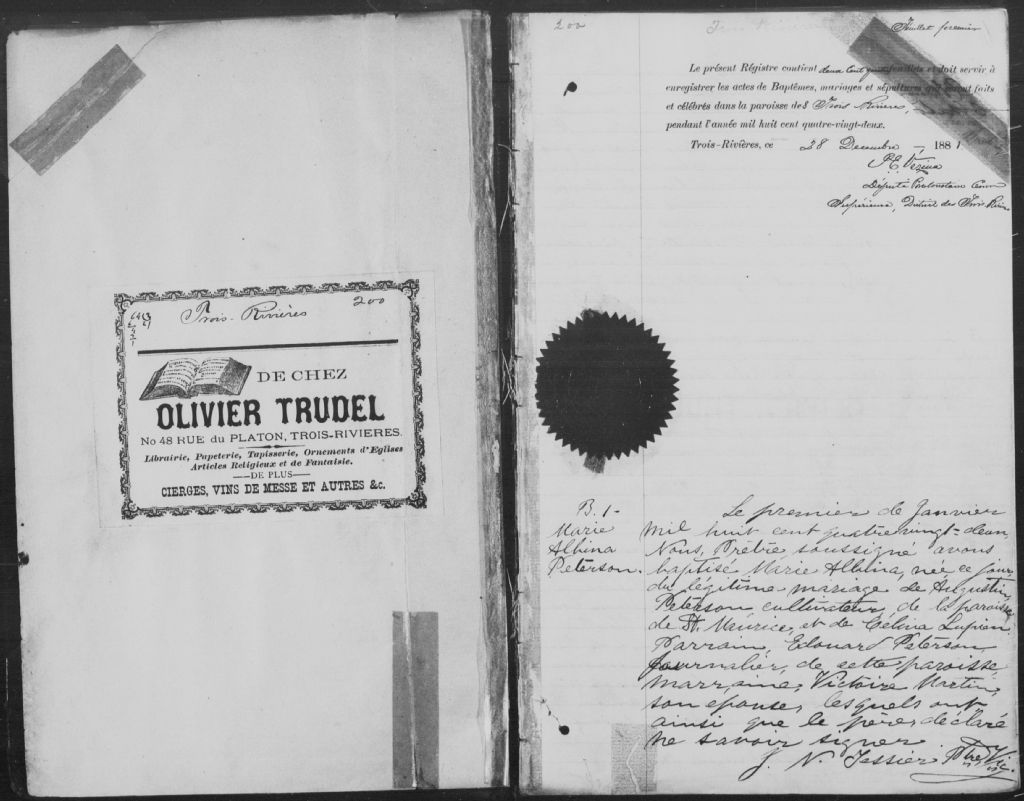 Trois-Rivières 200
DE CHEZ
OLIVIER TRUDEL
No 48 RUE du PLATON, TROIS-RIVIERES.
Librairie, Papeterie, Tapisserie, Ornements d'Eglises
Articles Religieux et de Fantaisie.
DE PLUS
CIERGES, VINS DE MESSE ET AUTRES &c.
200
Feuillet premier
Le présent Régistre contient deux cent feuillets et doit servir à
enregistrer les actes de Baptêmes, mariages et sépultures qui seront faits
et célébrés dans la paroisse des Trois Rivières,
pendant l'année mil huit cent quatre-vingt-deux.
Trois-Rivières, ce 28 Decembre 1881
Député Protonotaire Cour
Supérieure, District des Trois Riv
B. 1-
Marie
Albina
Peterson.
Le premier de Janvier
mil huit cent quatre vingt-deux
Nous, Prêtre soussigné avons
baptisé Marie Albina, née ce jour,
du légitime mariage de Augustin
Peterson, cultivateur, de la paroisse
de St. Maurice, et de Célina Lupien
Parrain, Edouard Peterson
journalier, de cette paroisse
marraine, Victoire Martin,
son épouse, lesquels ont
ainsi que le père, déclaré
ne savoir signer.
J. N. Tessier Ptre, Vic.